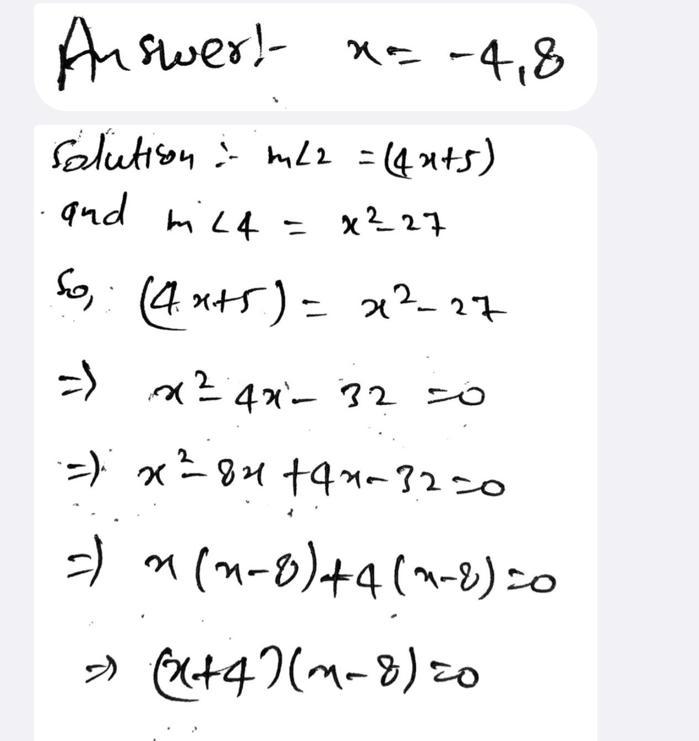 Answer:- x = -4,8
Solution :- m∠2 = (4x+5)
and m∠4 = x²-27
So, (4x+5) = x²-27
=> x²-4x-32 =0
=> x²-8x+4x-32=0
=> x(x-8)+4(x-8)=0
=> (x+4)(x-8)=0